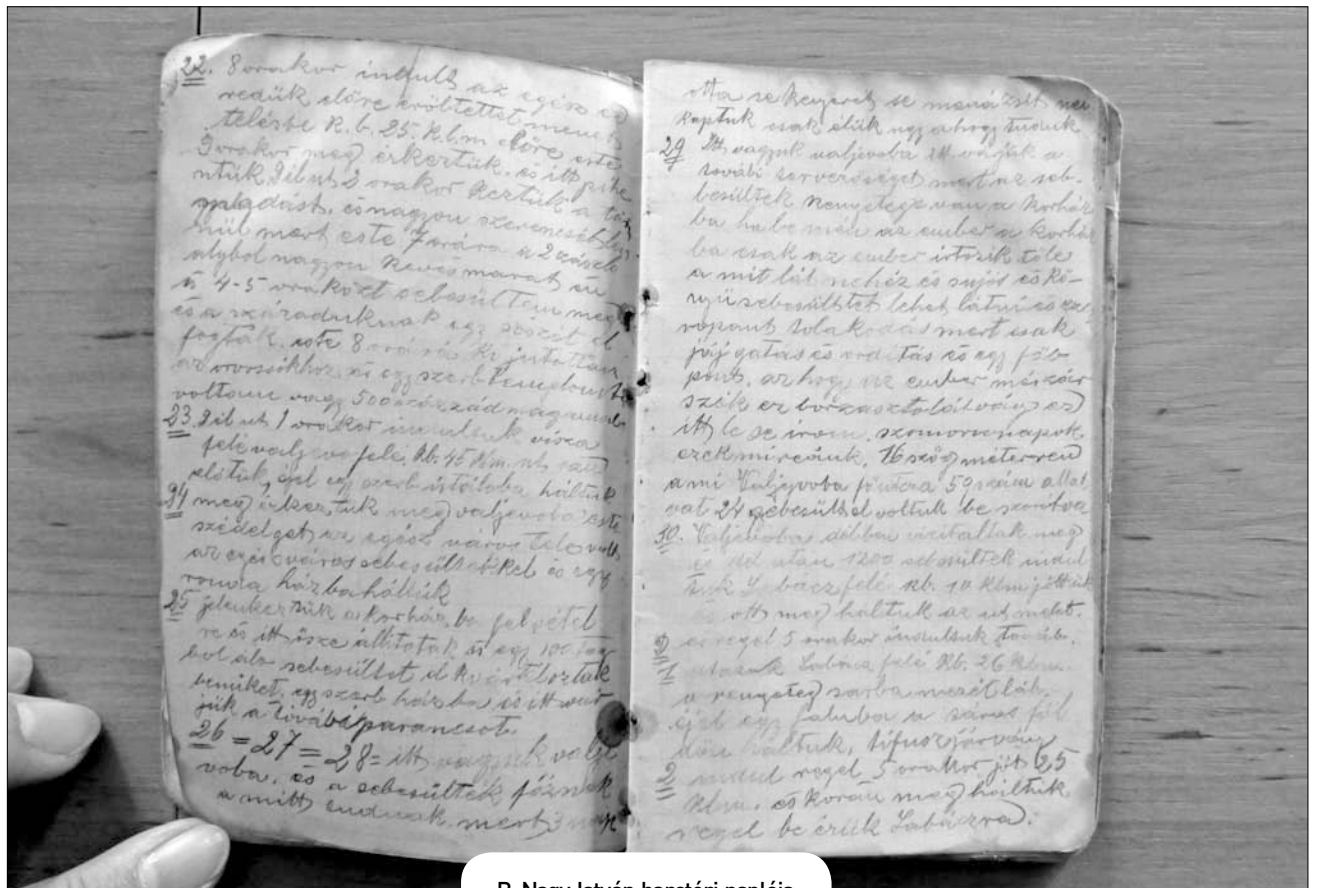 22. 8 orakor indult az egész ez
redük előre eröltettet menet
telésbe K. b. 25. K.l.m előre este
9 orakor meg érkeztük, és itt pihe
ntük. Dil ut 2 orakor keztük a tá
madást, és nagyon szerencsétlen
nül mert este 7 orára a 2 zászlo
alybol nagyon kevés marat én
is 4-5 oraközt sebesültem meg
és a századuknak egy részét el
fogták, este 8 orára ki jutottam
az orvosokhoz és egy szerb templomba
voltam vagy 500 század magammal
23. Dil ut 1 orakor indultunk visza
felé valjevo fele, Kb. 45 Klm. ut
előtük, éjel egy szerb istáloba háltuk
24 meg érkeztük meg valjevoba este
szédelget az egész város tele volt
az egész város sebesültekkel és egy
ronda házba háltuk
25 jelenkeztük a korház ba felvétel
re és itt ösze állitotak is egy 100 tag
bol álo sebesültet el kvártéloztak
benüket, egy szerb házba és itt vár
juk a továbi parancsot.
26 = 27 = 28 = itt vagyuk valje
voba, és a sebesültek főznek
a mitt tudnak mert 3 nap
otta se kenyeret se menázsit nem
kaptuk csak élük ugy ahogy tuduk
29 Itt vagyuk valjevoba itt várjuk a
továbi sorverőséget mert az seb-
besültek renyeteg van a korház
ba ha be mén az ember a korház
ba csak az ember irtozik töle
a mit lát nehéz és sujos és kö-
nyü sebesültet lehet látni és ez
ropant tolakodás mert csak
jajgatas és orditás és egy föb
pont, az hogy az ember mészár
szék ez borzaszto látvány ez
itt le se irom, szomoru napok
ezek mireánk, 16 szög méteren
a mi Valjevoba főutcza 59 szám allat
vat 24 sebesültel voltuk be szoritva
30. Valjevoba délba vizitáltak meg
és dél után 1200 sebesültek indul
tuk Sabácz felé kb. 10 klm jöttük
és ott meg háltuk az ut melet.
és regel 5 orakor indultuk továb.
utazuk Sabácz felé Kb. 26 klm.
a renyeteg sarba mezét láb.
éjel egy faluba a sáros föl
dön háltuk, tifusz járvány
2 indul regel 5 orakor jöt 25
klm. és korán meg háltuk
regel be érük Sabáczra.
B. Nagy István harctéri naplója